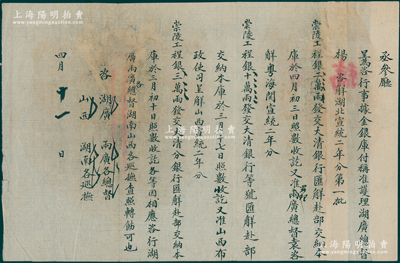 丞參廳
呈為咨行事據金銀庫付稱准護理湖廣總督
楊 咨解湖北宣統二年分第一批
崇陵工程銀二萬兩發交大清銀行匯解赴部交納本
庫於四月初三日照數收訖又准兩廣總督袁咨
解粵海關宣統二年分
崇陵工程銀十萬兩發交大清銀行等號匯解赴部
交納本庫於三月 日照數收訖又准山西布
政使司呈解山西宣統二年分
崇陵工程銀三萬兩發交大清分銀行匯解赴部交納本
庫於三月初十日照數收訖各等因相應咨行湖
廣兩廣總督湖南山西各巡撫查照轉飭可也
咨 湖廣 兩廣各總督
山西 湖南各巡撫
四月 十一 日
上海陽明拍賣
上海陽明拍賣